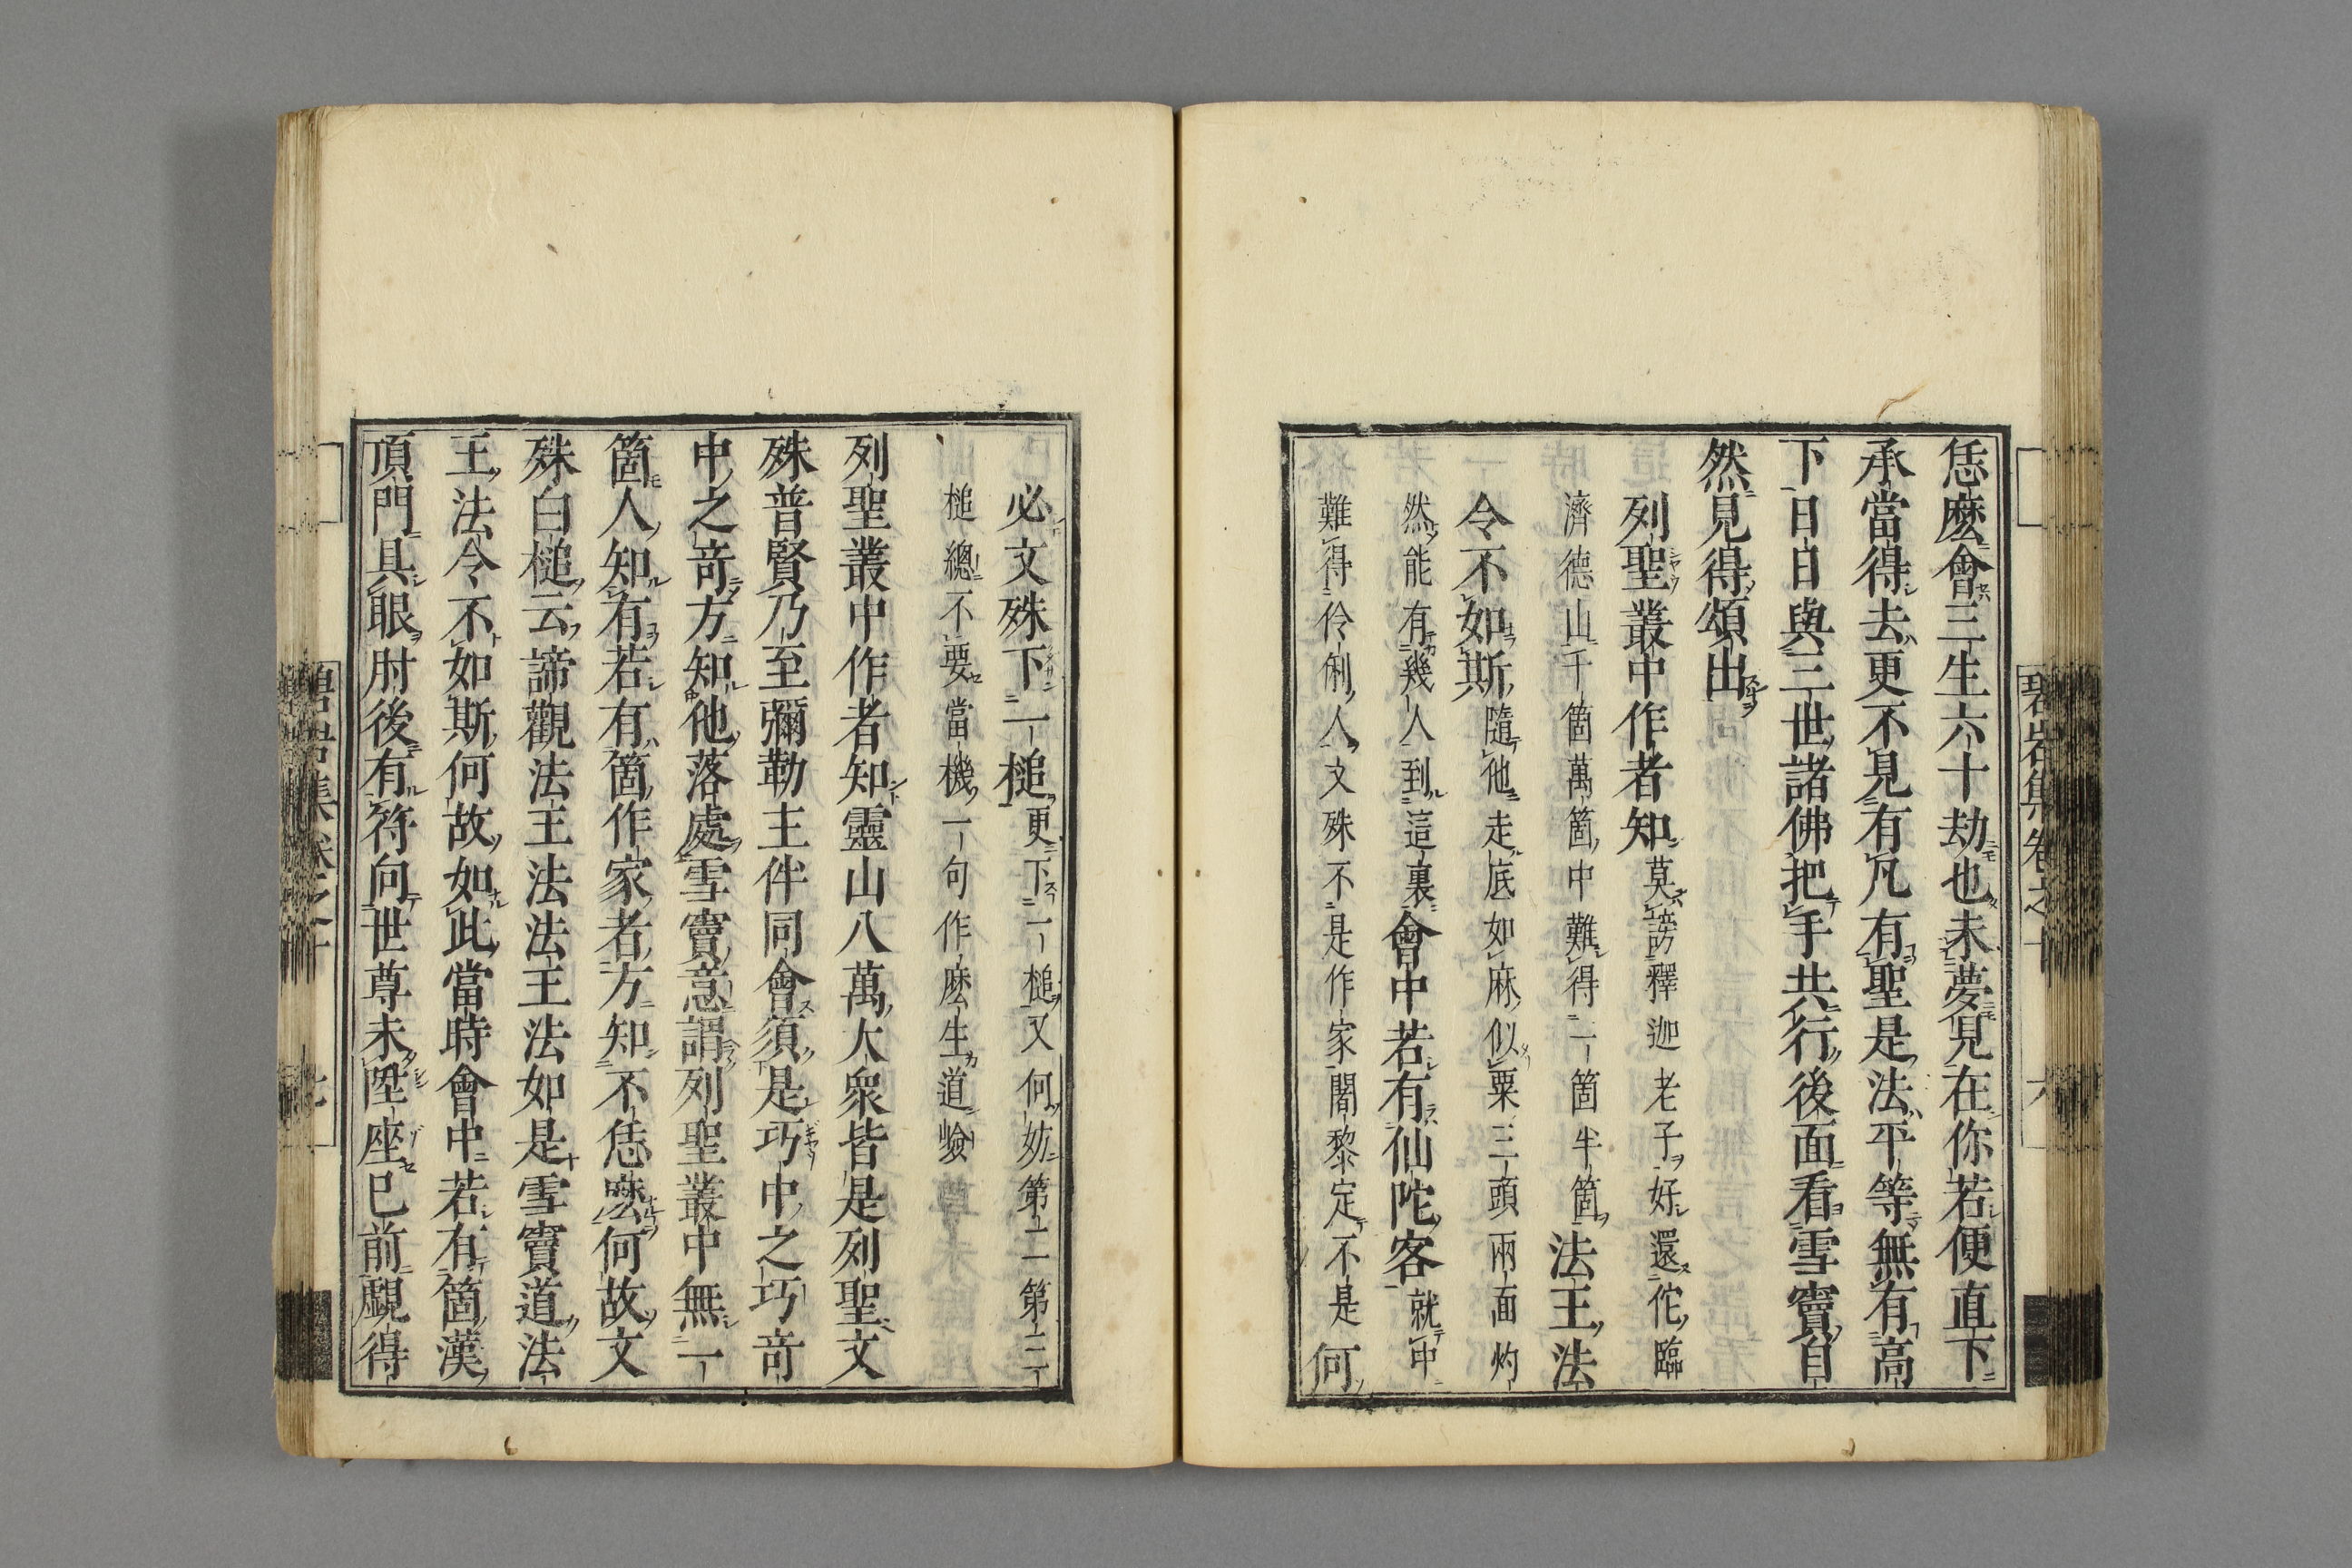 恁麽會三生六十劫也未夢見在你若便直下
承當得去更不見有凡有聖是法平等無有高
下日日與三世諸佛把手共行後面看雪竇自
然見得頌出
列聖叢中作者知莫謗釋迦老子好還佗臨
濟德山千箇萬箇中難得一箇半箇法王法
令不如斯隨他走底如麻似粟三頭兩面灼
然能有幾人到這裏會中若有仙陀客就中
難得伶俐人文殊不是作家闍黎定不是何
必文殊下一槌更下一槌又何妨第二第三
槌總不要當機一句作麽生道嶮
列聖叢中作者知靈山八萬大衆皆是列聖文
殊普賢乃至彌勒主伴同會須是巧中之巧奇
中之奇方知他落處雪竇意謂列聖叢中無一
箇人知有若有箇作家者方知不恁麽何故文
殊白槌云諦觀法王法法王法如是雪竇道法
王法令不如斯何故如此當時會中若有箇漢
頂門具眼肘後有符向世尊未陞座已前覷得
碧岩集卷之十
六
碧岩集卷之十
七